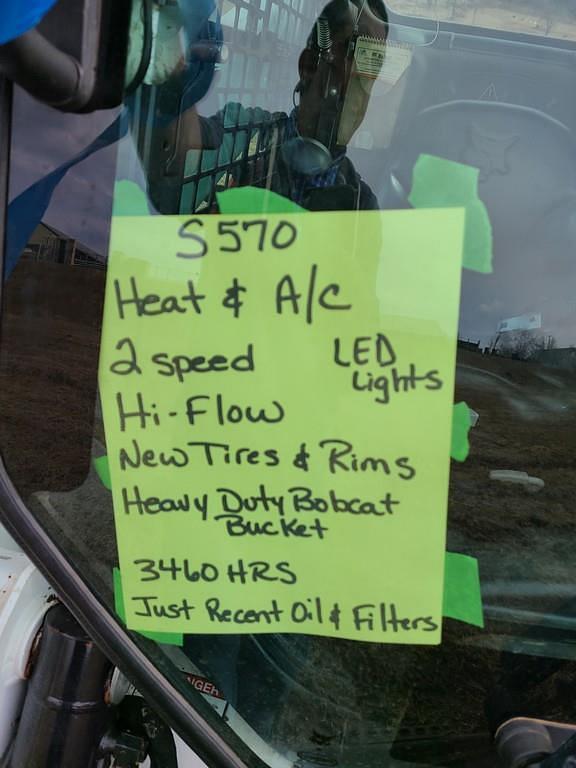 S570
Heat & A/C
2 speed
LED
Lights
Hi-Flow
New Tires & Rims
Heavy Duty Bobcat
Bucket
3460 HRS
Just Recent Oil & Filters
NGER